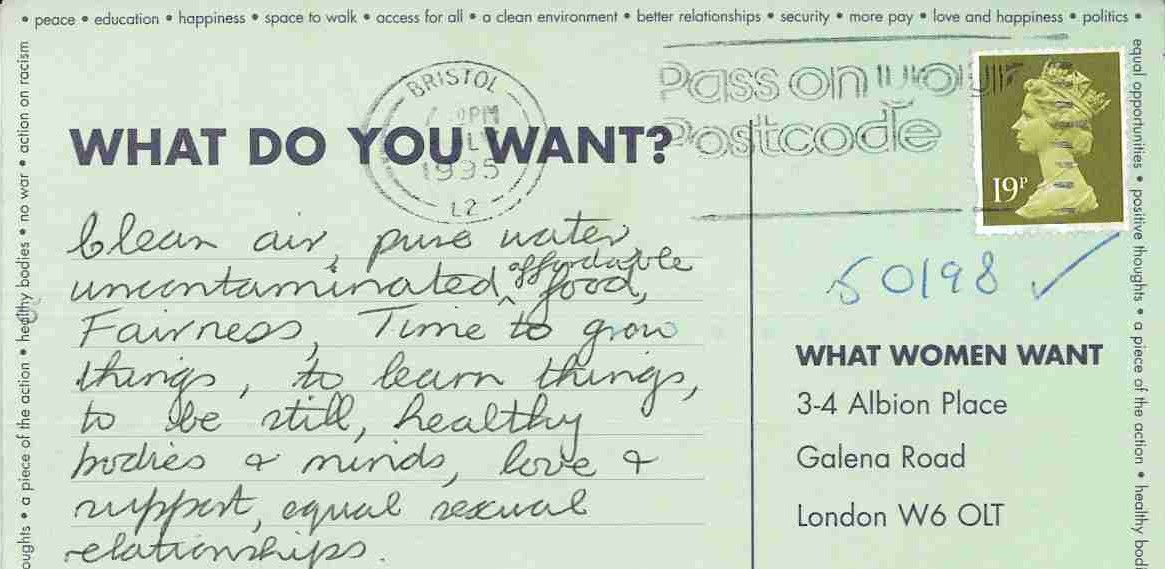 • peace • education • happiness • space to walk • access for all • a clean environment • better relationships • security • more pay • love and happiness • politics •
oughts • a piece of the action • healthy bodies • no war • action on racism
equal opportunities • positive thoughts • a piece of the action • healthy bodi
BRISTOL
PM
1995
L2
Pass on your
Postcode
19P
WHAT DO YOU WANT?
Clean air, pure water,
uncontaminated affordable food,
Fairness, Time to grow
things, to learn things,
to be still, healthy
bodies & minds, love &
support, equal sexual
relationships.
50198 ✓
WHAT WOMEN WANT
3-4 Albion Place
Galena Road
London W6 OLT